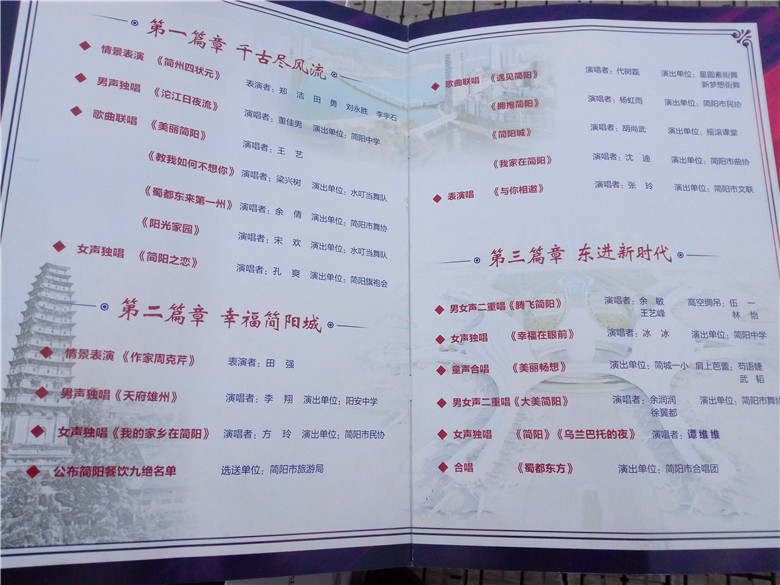 第一篇章 千古尽风流
情景表演 《简州四状元》 表演者：郑 洁 田 勇 刘永胜 李宇石
男声独唱 《沱江日夜流》 演唱者：董佳男 演出单位：简阳中学
歌曲联唱 《美丽简阳》 演唱者：王 艺
《教我如何不想你》 演唱者：梁兴树 演出单位：水叮当舞队
《蜀都东来第一州》 演唱者：余 倩 演出单位：简阳市舞协
《阳光家园》 演唱者：宋 欢 演出单位：水叮当舞队
女声独唱 《简阳之恋》 演唱者：孔 奭 演出单位：简阳旗袍会
第二篇章 幸福简阳城
情景表演 《作家周克芹》 表演者：田 强
男声独唱 《天府雄州》 演唱者：李 翔 演出单位：阳安中学
女声独唱 《我的家乡在简阳》 演唱者：方 玲 演出单位：简阳市民协
公布简阳餐饮九绝名单 选送单位：简阳市旅游局
歌曲联唱 《遇见简阳》 演唱者：代树磊 演出单位：星圆素街舞
新梦想街舞
《拥抱简阳》 演唱者：杨虹雨 演出单位：简阳市民协
《简阳城》 演唱者：胡尚武 演出单位：摇滚课堂
《我家在简阳》 演唱者：沈 迪 演出单位：简阳市曲协
表演唱 《与你相邀》 演唱者：张 玲 演出单位：简阳市文联
第三篇章 东进新时代
男女声二重唱《腾飞简阳》 演唱者：余 敏 高空绸吊：伍 一
王艺峰 林 怡
女声独唱 《幸福在眼前》 演唱者：冰 冰 演出单位：简阳中学
童声合唱 《美丽畅想》 演出单位：简城一小 肩上芭蕾：苟语婕
武 韬
男女声二重唱《大美简阳》 演唱者：余润润 演出单位：简阳市舞协
徐翼都
女声独唱 《简阳》《乌兰巴托的夜》 演唱者：谭维维
合唱 《蜀都东方》 演出单位：简阳市合唱团